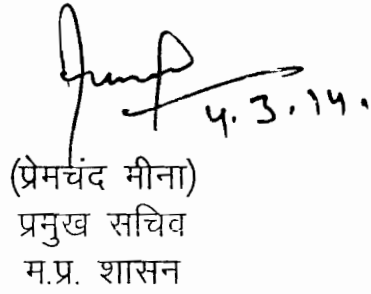 4.3.14.
(प्रेमचंद मीना)
प्रमुख सचिव
म.प्र. शासन